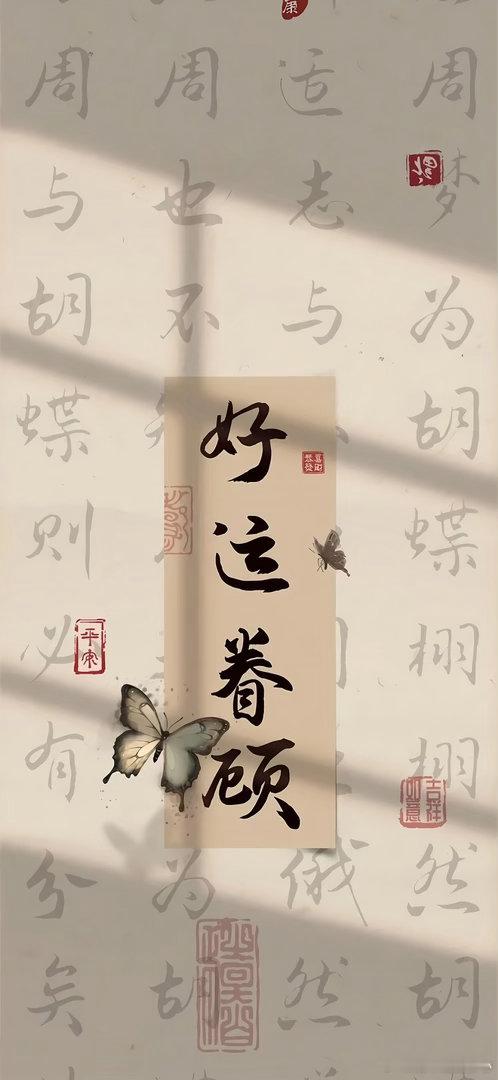 周梦为胡蝶栩栩然胡
适志与
俄然
周也不
为胡
周与胡蝶则必有分矣
好运眷顾
平安
吉祥如意